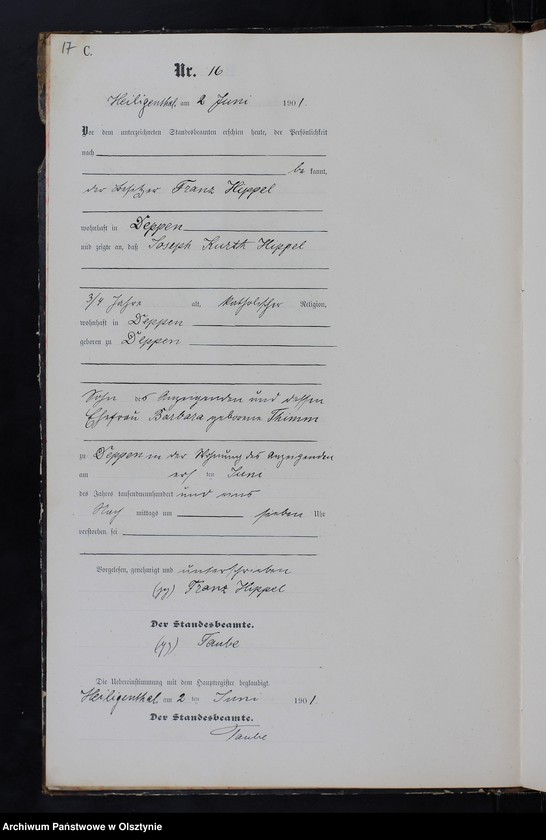 17 C.
Nr. 16
Heiligenthal, am 2 Juni 1901.
Vor dem unterzeichneten Standesbeamten erschien heute, der Persönlichkeit
nach
be kannt,
der Besitzer Franz Hippel
wohnhaft in Deppen
und zeigte an, daß Joseph Kurth Hippel
3/4 Jahre alt, katholischer Religion,
wohnhaft in Deppen
geboren zu Deppen
Sohn des Anzeigenden und dessen
Ehefrau Barbara geborene Thimm
zu Deppen in der Wohnung des Anzeigenden
am ten Juni
des Jahres tausendneunhundert und eins
Nach mittags um sieben Uhr
verstorben sei
Vorgelesen, genehmigt und unterschrieben
(gz) Franz Hippel
Der Standesbeamte.
(gz) Taube
Die Uebereinstimmung mit dem Hauptregister beglaubigt.
Heiligenthal, am 2 ten Juni 1901.
Der Standesbeamte.
Taube
Archiwum Państwowe w Olsztynie